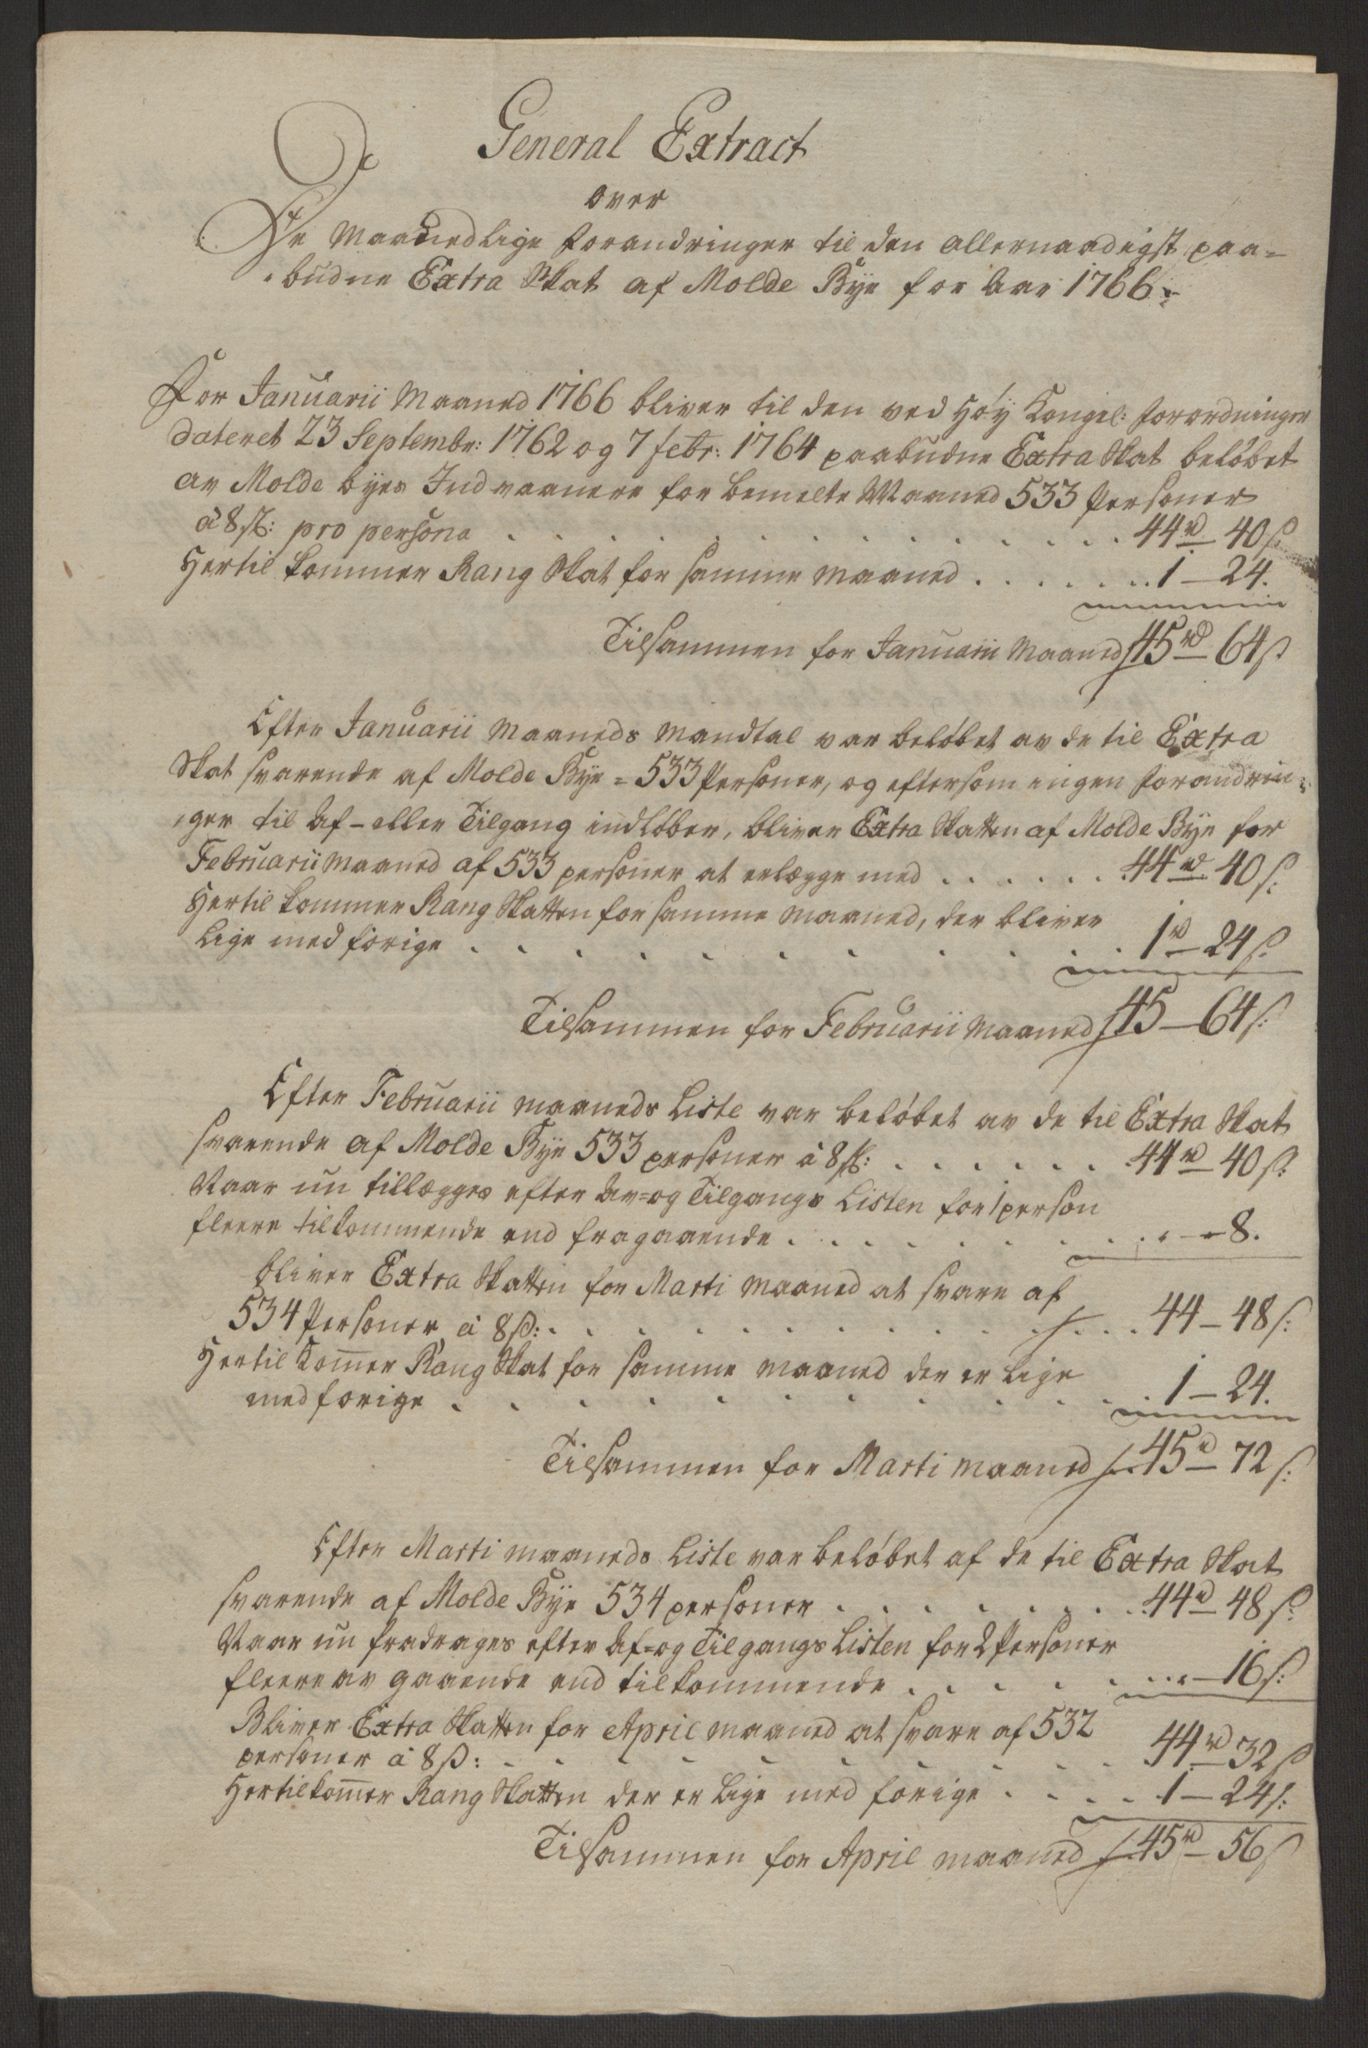 General Extract
over
De Maanedlige forandringer til den allernaadigst paa-
budne Extra Skat af Molde Bye for Aar 1766.
For Januarii Maaned 1766 bliver til den ved Høy Kongel: forordninger
dateret 23 Septembr: 1762 og 7 febr: 1764 paabudne Extra Skat beløbet
av Molde byes Indvaanere for bemelte Maaned 533 Personer
à 8 sk: pro persona . . . . . . . . . . . . 44 rd 40 s
Hertil kommer Rang Skat for samme Maaned . . . . . . . 1 — 24.
Tilsammen for Januarii Maaned 45 rd 64 s
Efter Januarii Maaneds Mandtal var beløbet av de til Extra
Skat svarende af Molde Bye = 533 Personer, og eftersom ingen forandrin-
ger til Af- eller Tilgang indløber, bliver Extra Skatten af Molde Bye for
Februarii Maaned af 533 personer at erlægge med . . . . . . 44 rd 40 s:
Hertil kommer Rang Skatten for samme Maaned, der bliver
lige med forige . . . . . . . . . . . 1 rd 24 s:
Tilsammen for Februarii Maaned 45 — 64 s:
Efter Februarii maaneds Liste var beløbet av de til Extra Skat
svarende af Molde Bye 533 personer à 8 sk: . . . . . . 44 rd 40 s.
Naar nu tillægges efter Av- og Tilgangs Listen for 1 person
fleere tilkommende end fragaaende . . . . . . . . — 8.
bliver Extra Skatten for Marti Maaned at svare af
534 Personer à 8 s: . . . . . . . . . . . 44 — 48 s:
Hertil Komer Rang Skat for samme maaned der er lige
med forige . . . . . . . . . . . . 1 — 24.
Tilsammen for Marti maaned 45 rd 72 s:
Efter Marti maaneds Liste var beløbet af de til Extra Skat
svarende af Molde Bye 534 personer . . . . . . . 44 rd 48 s:
Naar nu fradrages efter Af- og Tilgangs Listen for 2 Personer
fleere av gaaende end tilkommende . . . . . . . — 16 s:
Bliver Extra Skatten for April maaned at svare af 532
personer à 8 s: . . . . . . . . . 44 rd 32 s
Hertil komer Rang Skatten der er lige med forige . . . . 1 — 24 s:
Tilsammen for April maaned 45 rd 56 s